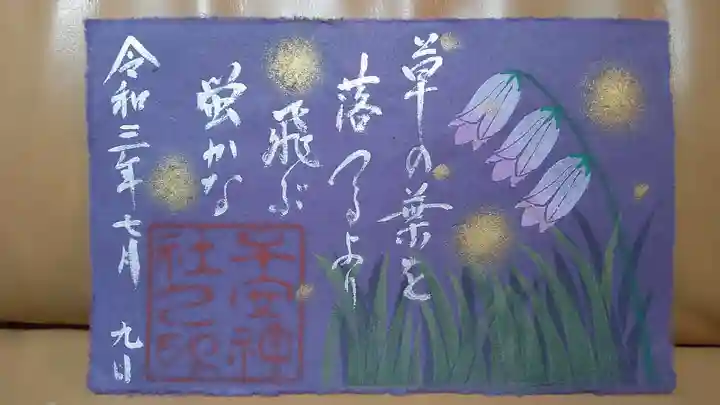 草の葉を
落つるより
飛ぶ
蛍かな
令和三年七月 九日